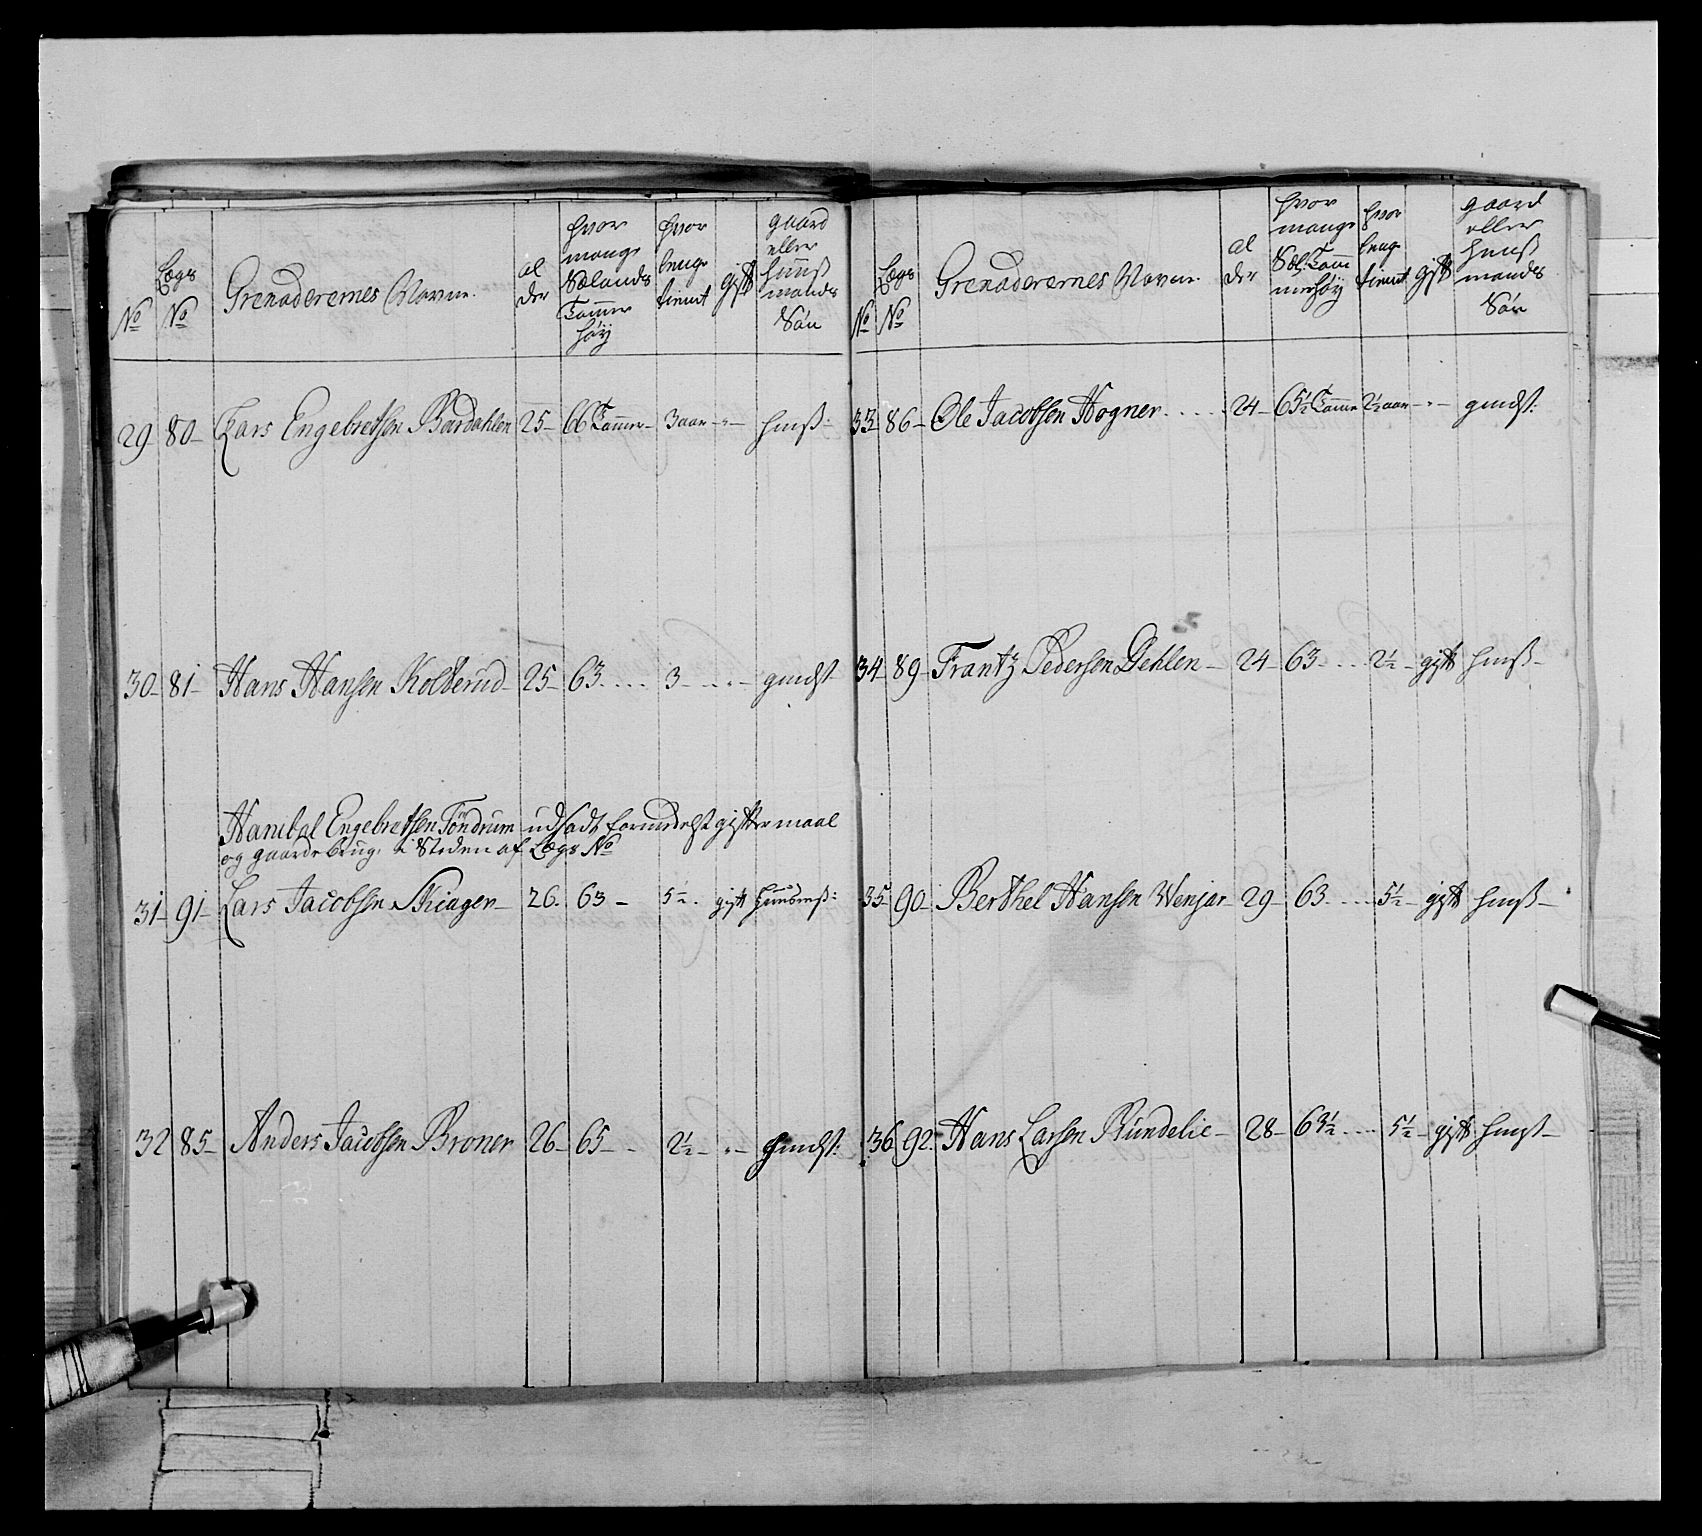 No
Lægs No
Grenaderernes Navne.
al der
hvor mange Sælands Tommer høy
hvor lenge tient
gift
gaard eller huuß mands Søn
29 80 Lars Engebretsen Bardahlen 25 66 Tommer 3 aar - hmß:
30 81 Hans Hansen Kolberud 25 63 3 - gmdst
Hanibal Engebretsen Töndrum udsadt formedelst gifftermaal
og gaardebrug, i Steden af Lægs No
31 91 Lars Jacobsen Skiager 26. 63 5½. gift
32 85 Anders Jacobsen Broner 26 65 2½ - gmdst:
No
Lægs No
Grenaderernes Navne
al der
hvor mange Sæl: Tom merhøy
hvor leng tient
gift
gaard eller huuß mands Søn
33 86 Ole Jacobsen Hogner 24 65½ Tomme 2½ aar - gmdst:
34 89 Frantz Pedersen Dehlen 24 63 2½ gift hmß
35 90 Berthel Hansen Wenjar 29 63 5½ gift hmß
36 92. Hans Larsen Rundelie 28 63½ 5½ gift hmst